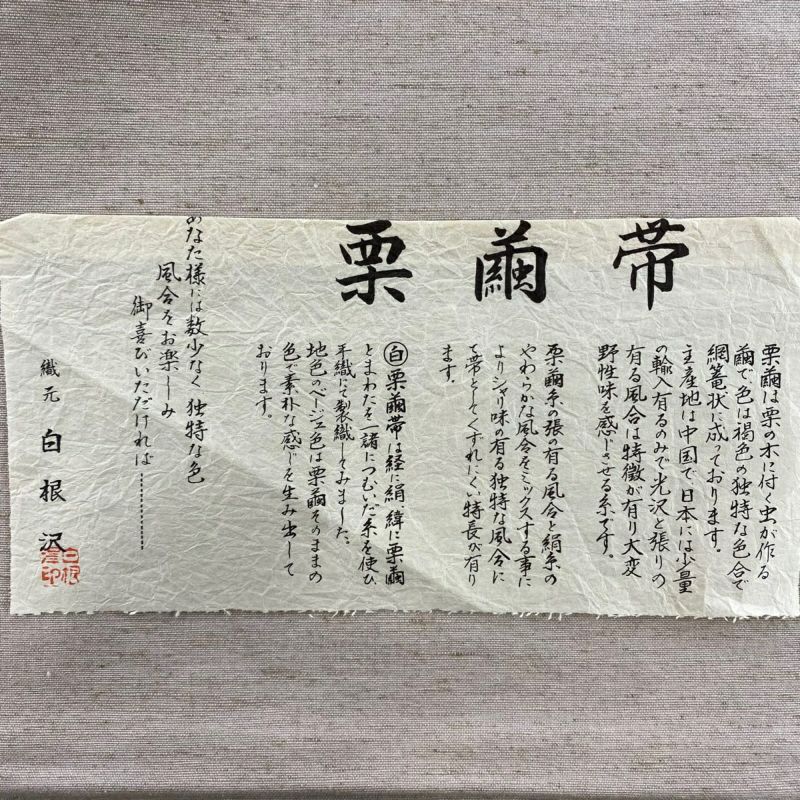 栗繭帯
栗繭は栗の木に付く虫が作る
繭で、色は褐色の独特な色合で
網篭状に成っております。
主産地は中国で、日本には少量
の輸入有るのみで光沢と張りの
有る風合は特徴が有り大変
野性味を感じさせる糸です。
栗繭糸の張の有る風合と絹糸の
やわらかな風合をミックスする事に
よりシャリ味の有る独特な風合に
て帯としてくずれにくい特長が有り
ます。
㊂栗繭帯は経に絹 緯に栗繭
とまわたを一諸につむいだ糸を使ひ
平織にて製織してみました。
地色のベージュ色は栗繭そのままの
色で素朴な感じを生み出して
おります。
あなた様には数少なく独特な色
風合をお楽しみ
御喜びいただければ……………
織元 白根沢
白根澤印